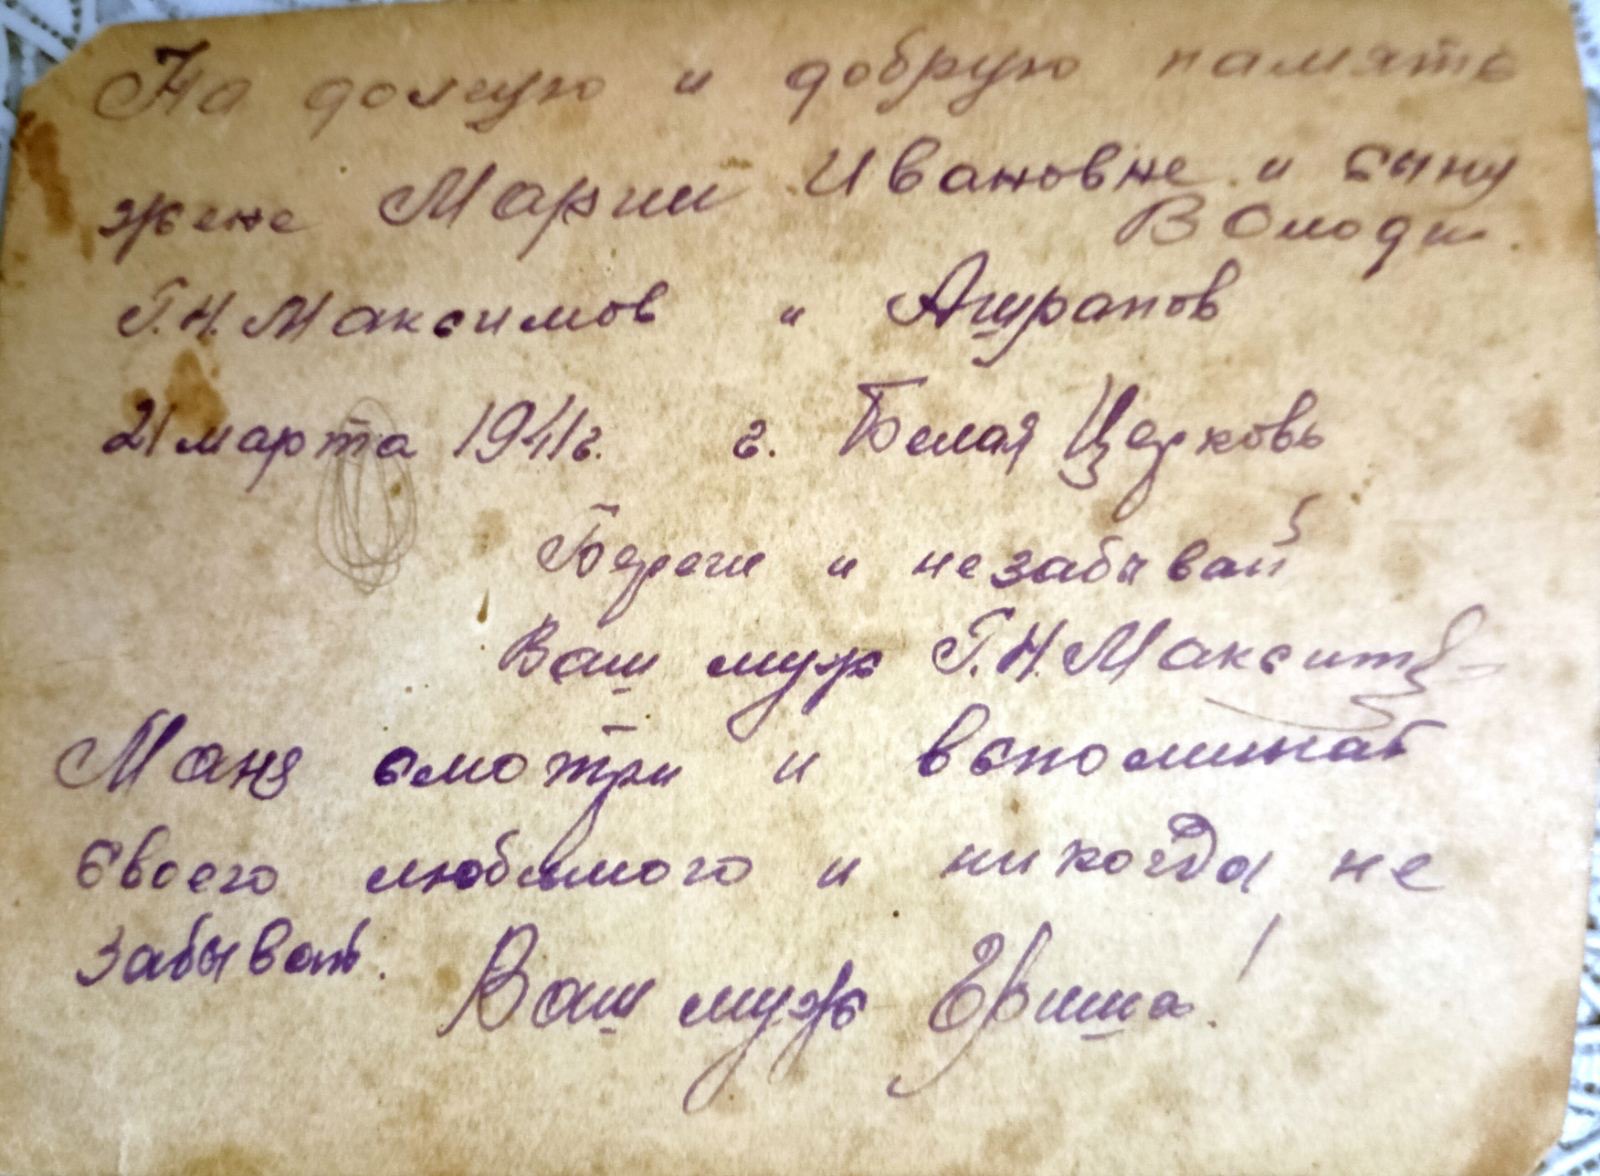 На долгую и добрую память
жене Марии Ивановне и сыну
Володи.
Г.Н. Максимов и Ашрапов
21 марта 1941 г. г. Белая Церковь
Береги и незабывай
Ваш муж Г.Н. Максим
Маня смотри и вспоминай
своего любимого и никогда не
забывай.
Ваш муж Гриша!